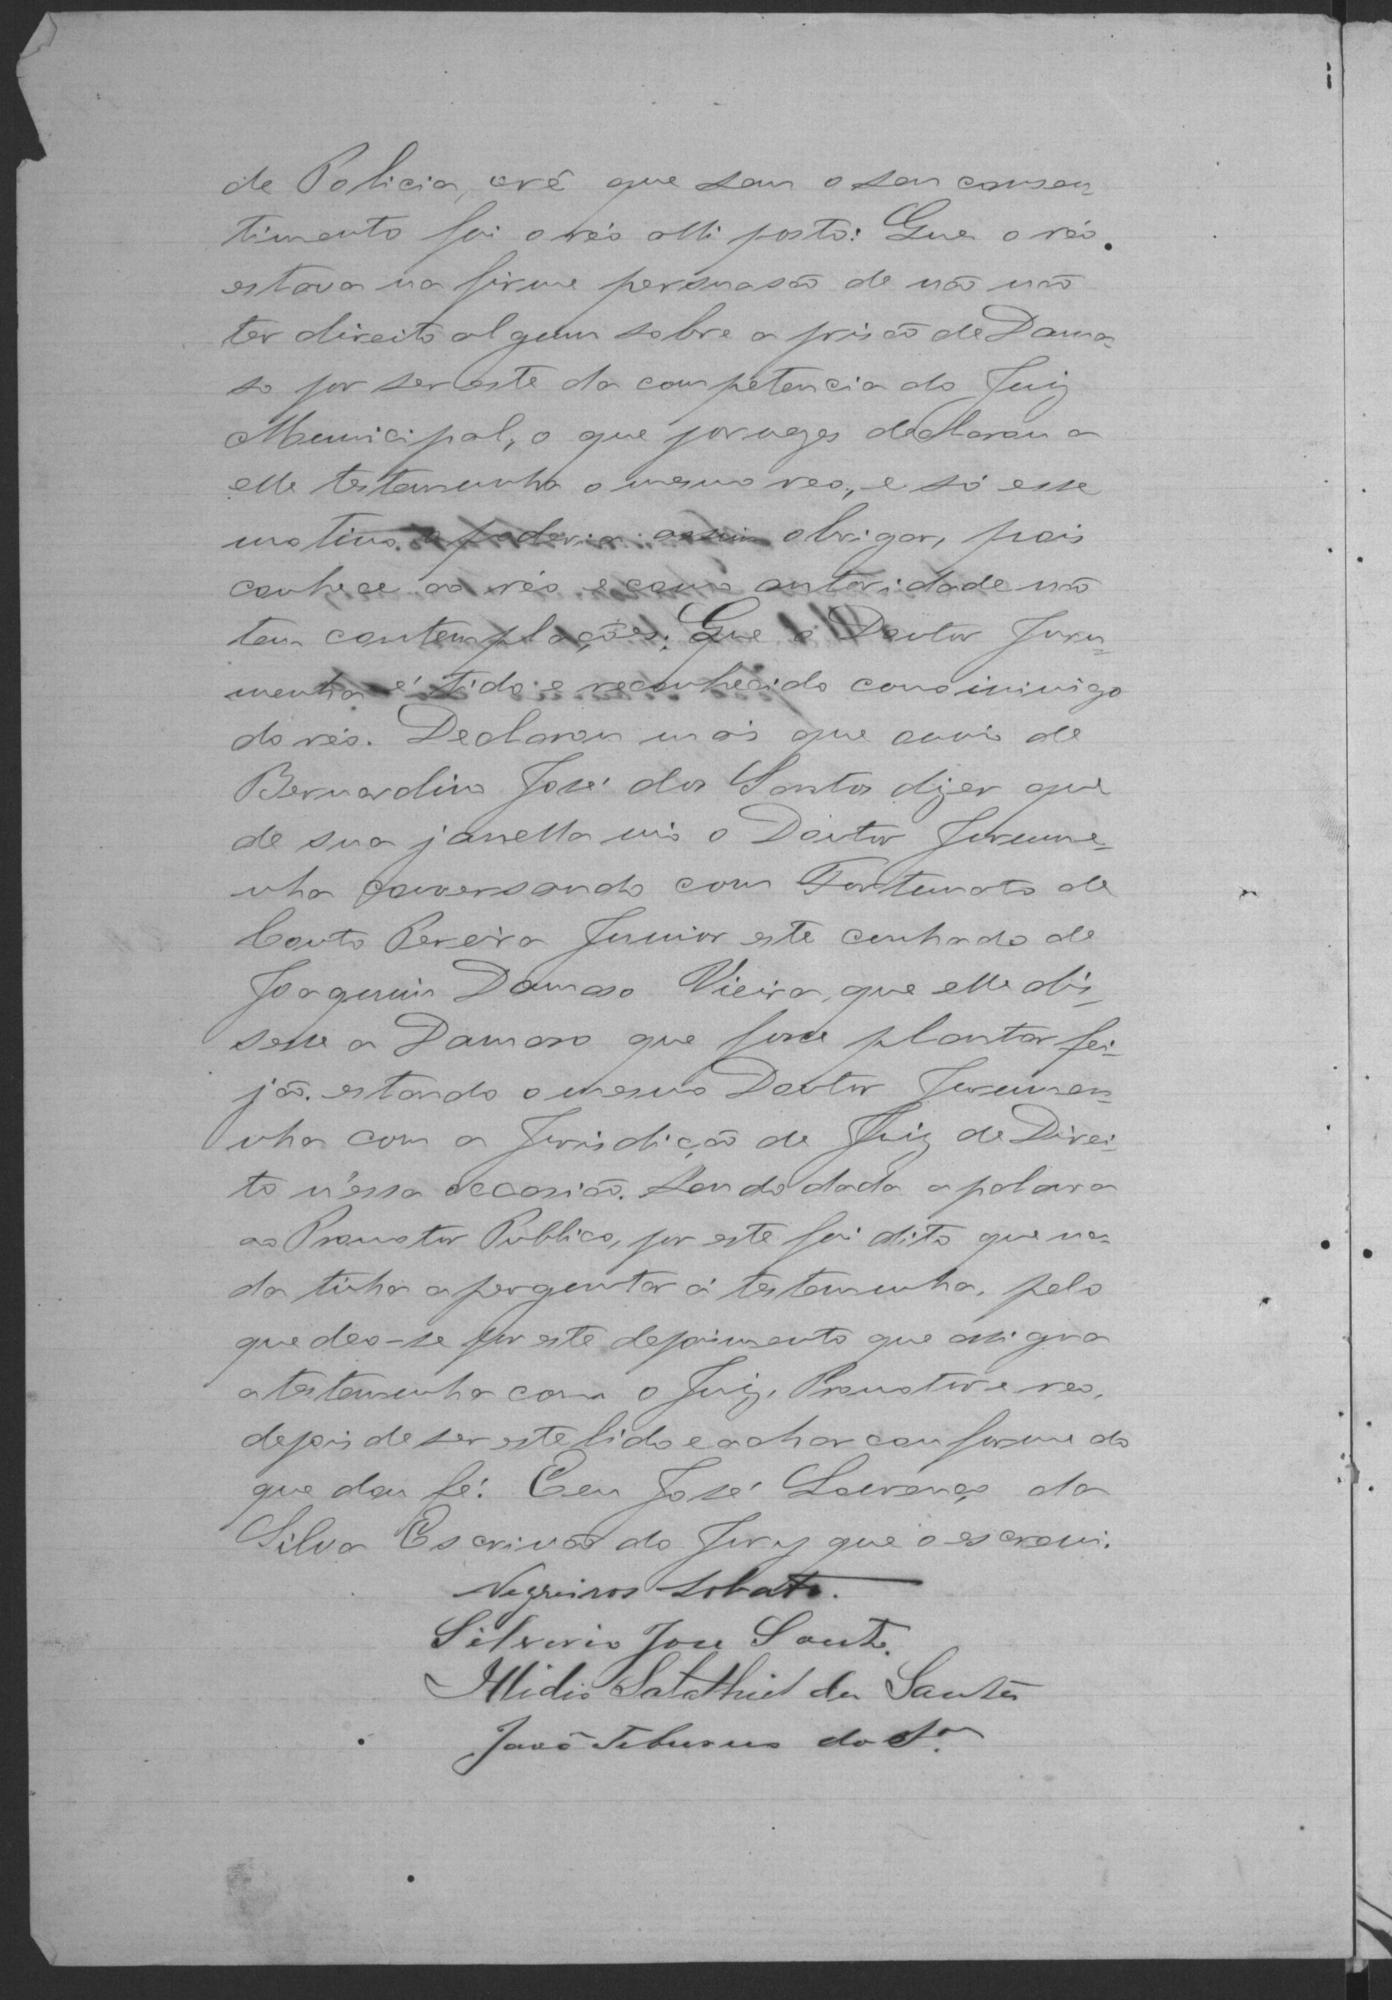 de Policia, cré que sem o seu consen-
timento foi o réo alli posto: Que o réo
estava na firme persuasão de não não
ter direito algum sobre a prisão de Dama-
so por ser este da competencia do Juiz
Municipal, o que por vezes declarou a
elle testemunha o mesmo reo, e só esse
motivo o poderia assim obrigar, pois
conhece ao réo e como autoridade não
tem contemplações: Que o Doutor Juru-
menha é tido e reconhecido como inimigo
do réo. Declarou mais que ouvio de
Bernardino José dos Santos dizer que
de sua janella vio o Doutor Jurume-
nha conversando com Fortunato de
Couto Pereira Junior este cunhado de
Joaquim Damaso Vieira, que elle dis-
sesse a Damaso que fosse plantar fei-
jão. estando o mesmo Doutor Jurumen-
nha com a Jurisdicção de Juiz de Direi-
to n'essa occasião. Sendo dada a palavra
ao Promotor Publico, por este foi dito que na-
da tinha a perguntar á testemunha, pelo
que deo-se por este depoimento que assigna
a testemunha com o Juiz, Promotor e reo,
depois de ser este lido e achar conforme do
que dou fé. Eeu José Lourenço da
Silva Escrivão do Jury que o escrevi.
Negreiros Lobato.
Silverio José Souto.
Illidio Salathiel dos Santos
João Tiburcio da Sª